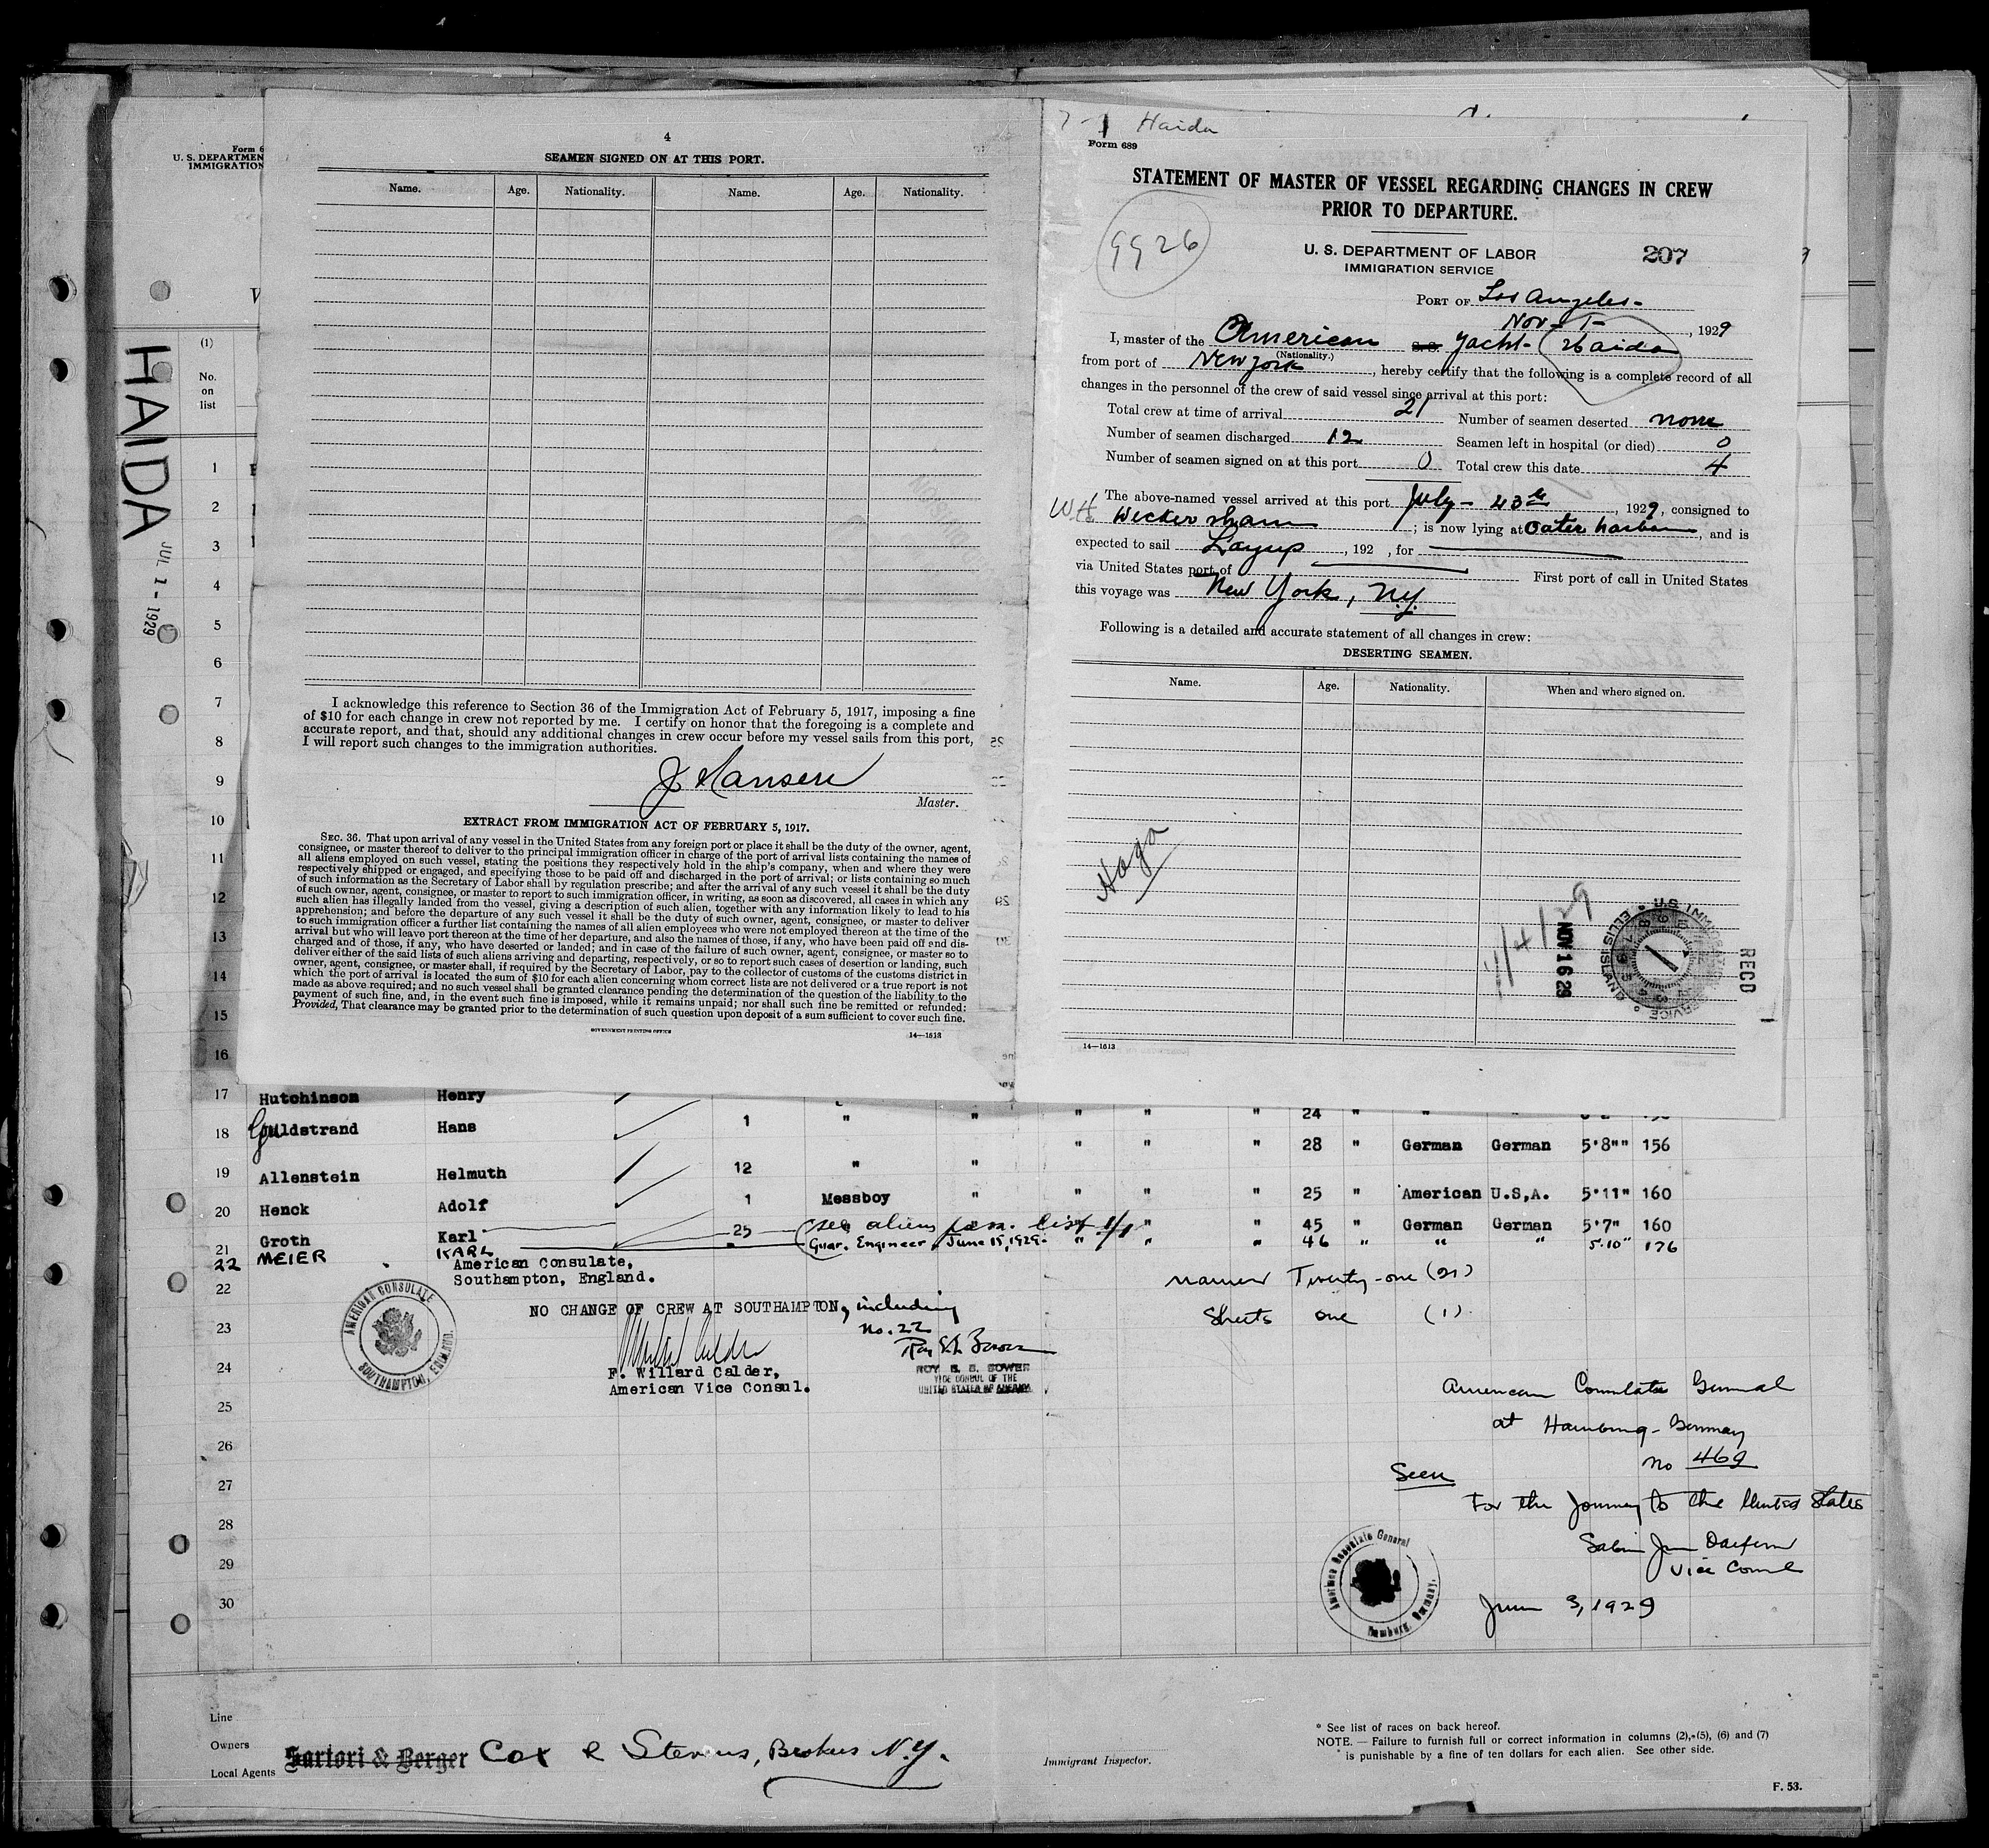 Form 6
U. S. DEPARTMEN
IMMIGRATION
HAIDA
JUL 1 - 1929
(1)
No.
on
list
1
2
3
4
5
6
7
8
9
10
11
12
13
14
15
16
4
SEAMEN SIGNED ON AT THIS PORT.
Name. Age. Nationality. Name. Age. Nationality.
I acknowledge this reference to Section 36 of the Immigration Act of February 5, 1917, imposing a fine
of $10 for each change in crew not reported by me. I certify on honor that the foregoing is a complete and
accurate report, and that, should any additional changes in crew occur before my vessel sails from this port,
I will report such changes to the immigration authorities.
J Hansen
Master.
EXTRACT FROM IMMIGRATION ACT OF FEBRUARY 5, 1917.
SEC. 36. That upon arrival of any vessel in the United States from any foreign port or place it shall be the duty of the owner, agent,
consignee, or master thereof to deliver to the principal immigration officer in charge of the port of arrival lists containing the names of
all aliens employed on such vessel, stating the positions they respectively hold in the ship's company, when and where they were
respectively shipped or engaged, and specifying those to be paid off and discharged in the port of arrival; or lists containing so much
of such information as the Secretary of Labor shall by regulation prescribe; and after the arrival of any such vessel it shall be the duty
of such owner, agent, consignee, or master to report to such immigration officer, in writing, as soon as discovered, all cases in which any
such alien has illegally landed from the vessel, giving a description of such alien, together with any information likely to lead to his
apprehension; and before the departure of any such vessel it shall be the duty of such owner, agent, consignee, or master to deliver
to such immigration officer a further list containing the names of all alien employees who were not employed thereon at the time of the
arrival but who will leave port thereon at the time of her departure, and also the names of those, if any, who have been paid off and dis-
charged and of those, if any, who have deserted or landed; and in case of the failure of such owner, agent, consignee, or master so to
deliver either of the said lists of such aliens arriving and departing, respectively, or so to report such cases of desertion or landing, such
owner, agent, consignee, or master shall, if required by the Secretary of Labor, pay to the collector of customs of the customs district in
which the port of arrival is located the sum of $10 for each alien concerning whom correct lists are not delivered or a true report is not
made as above required; and no such vessel shall be granted clearance pending the determination of the question of the liability to the
payment of such fine, and, in the event such fine is imposed, while it remains unpaid; nor shall such fine be remitted or refunded:
Provided, That clearance may be granted prior to the determination of such question upon deposit of a sum sufficient to cover such fine.
GOVERNMENT PRINTING OFFICE 14—1513
7-1 Haida
Form 689
STATEMENT OF MASTER OF VESSEL REGARDING CHANGES IN CREW
PRIOR TO DEPARTURE.
9926
U. S. DEPARTMENT OF LABOR
IMMIGRATION SERVICE
207
PORT OF Los Angeles-
Nov-1-, 1929
I, master of the American S.S. Yacht- Haida
(Nationality.)
from port of New York, hereby certify that the following is a complete record of all
changes in the personnel of the crew of said vessel since arrival at this port:
Total crew at time of arrival 21 Number of seamen deserted none
Number of seamen discharged 12 Seamen left in hospital (or died) 0
Number of seamen signed on at this port 0 Total crew this date 4
The above-named vessel arrived at this port July - 23, 1929, consigned to
Wickersham; is now lying at Outer harbor, and is
expected to sail Layup, 192 , for
via United States port of First port of call in United States
this voyage was New York, N.Y.
Following is a detailed and accurate statement of all changes in crew:
DESERTING SEAMEN.
Name. Age. Nationality. When and where signed on.
11/4/29
NOV 16 29
U.S. IMMIGRATION SERVICE ELLIS ISLAND
RECD
14—1513
17 Hutchinson Henry
18 Guldstrand Hans 1 " " " " " 24 " "
" " " 28 " German German 5'8"" 156
19 Allenstein Helmuth 12 " "
20 Henck Adolf 1 Messboy " " " " 25 " American U.S,A. 5'11" 160
21 Groth Karl 25 (see aliens pass. list 1/1 " " 45 " German German 5'7" 160
22 MEIER KARL " Guar. Engineer June 15, 1929. " " " 46 " " " 5'10" 176
American Consulate,
Southampton, England.
22
23
24
25
26
27
28
29
30
NO CHANGE OF CREW AT SOUTHAMPTON, including
no. 22
AMERICAN CONSULATE
SOUTHAMPTON, ENGLAND.
F. Willard Calder,
American Vice Consul.
ROY E. B. BOWER
VICE CONSUL OF THE
UNITED STATES OF AMERICA
names Twenty-one (21)
Sheets one (1)
American Consulate General
at Hamburg-Germany
no 469
Seen
For the Journey to the United States
Vice Consul
June 3, 1929
American Consulate General
Hamburg, Germany.
Line
Owners
Local Agents
Sartori & Berger Cox & Stevens, Brokers N.Y.
Immigrant Inspector.
* See list of races on back hereof.
NOTE. — Failure to furnish full or correct information in columns (2), (5), (6) and (7)
is punishable by a fine of ten dollars for each alien. See other side.
F. 53.